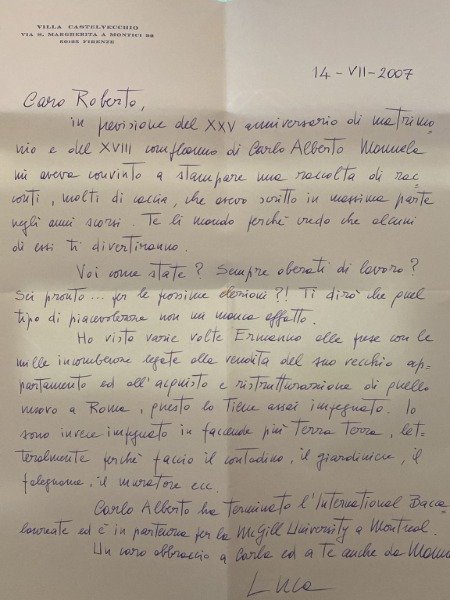 VILLA CASTELVECCHIO
VIA S. MARGHERITA A MONTICI
FIRENZE
14-VII-2007
Caro Roberto,
in previsione del XXV anniversario di matrimo-
nio e del XVIII compleanno di Carlo Alberto Manuela
mi aveva convinto a stampare una raccolta di rac-
conti, molti di caccia, che avevo scritto in massima parte
negli anni scorsi. Te li mando perché credo che alcuni
di essi ti divertiranno.
Voi come state? Sempre oberati di lavoro?
Sei pronto... per le prossime elezioni?! Ti dirò che quel
tipo di piacevolezze non mi manca affatto.
Ho visto varie volte Ermanno alle prese con le
mille incombenze legate alla vendita del suo vecchio ap-
partamento ed all'acquisto e ristrutturazione di quello
nuovo a Roma, questo lo tiene assai impegnato. Io
sono invece impegnato in faccende più terra terra, let-
teralmente perché faccio il contadino, il giardiniere, il
falegname, il muratore ecc.
Carlo Alberto ha terminato l'International Bacca-
laureate ed è in partenza per la McGill University a Montreal.
Un caro abbraccio a Carla ed a te anche da
Luca